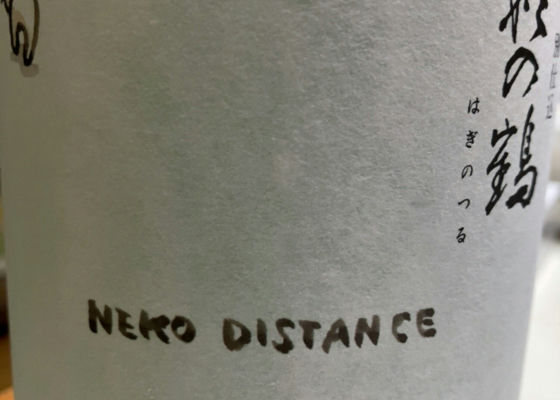 の鶴
はぎのつる
NEKO DISTANCE